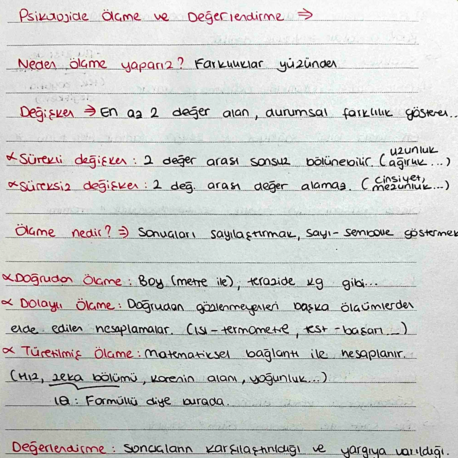 Psikolojide Ölçme ve Değerlendirme ⇒
Neden ölçme yaparız? Farklılıklar yüzünden
Değişken ⇒ En az 2 değer alan, durumsal farklılık gösteren..
∝ Sürekli değişken : 2 değer arası sonsuz bölünebilir. (uzunluk ağırlık...)
∝ Süreksiz değişken : 2 değ. arası değer alamaz. (cinsiyet, mezunluk...)
Ölçme nedir? ⇒ Sonuçları sayılaştırmak, sayı-sembolle göstermek
∝ Doğrudan Ölçme : Boy (metre ile), terazide kg gibi...
∝ Dolaylı Ölçme : Doğrudan gözlenmeyenleri başka ölçümlerden
elde edilen hesaplamalar. (Isı-termometre, test-başarı...)
∝ Türetilmiş Ölçme : Matematiksel bağlantı ile hesaplanır.
(Hız, zeka bölümü, karenin alanı, yoğunluk...)
IQ : Formüllü diye burada.
Değerlendirme : Sonuçların karşılaştırıldığı ve yargıya varıldığı.